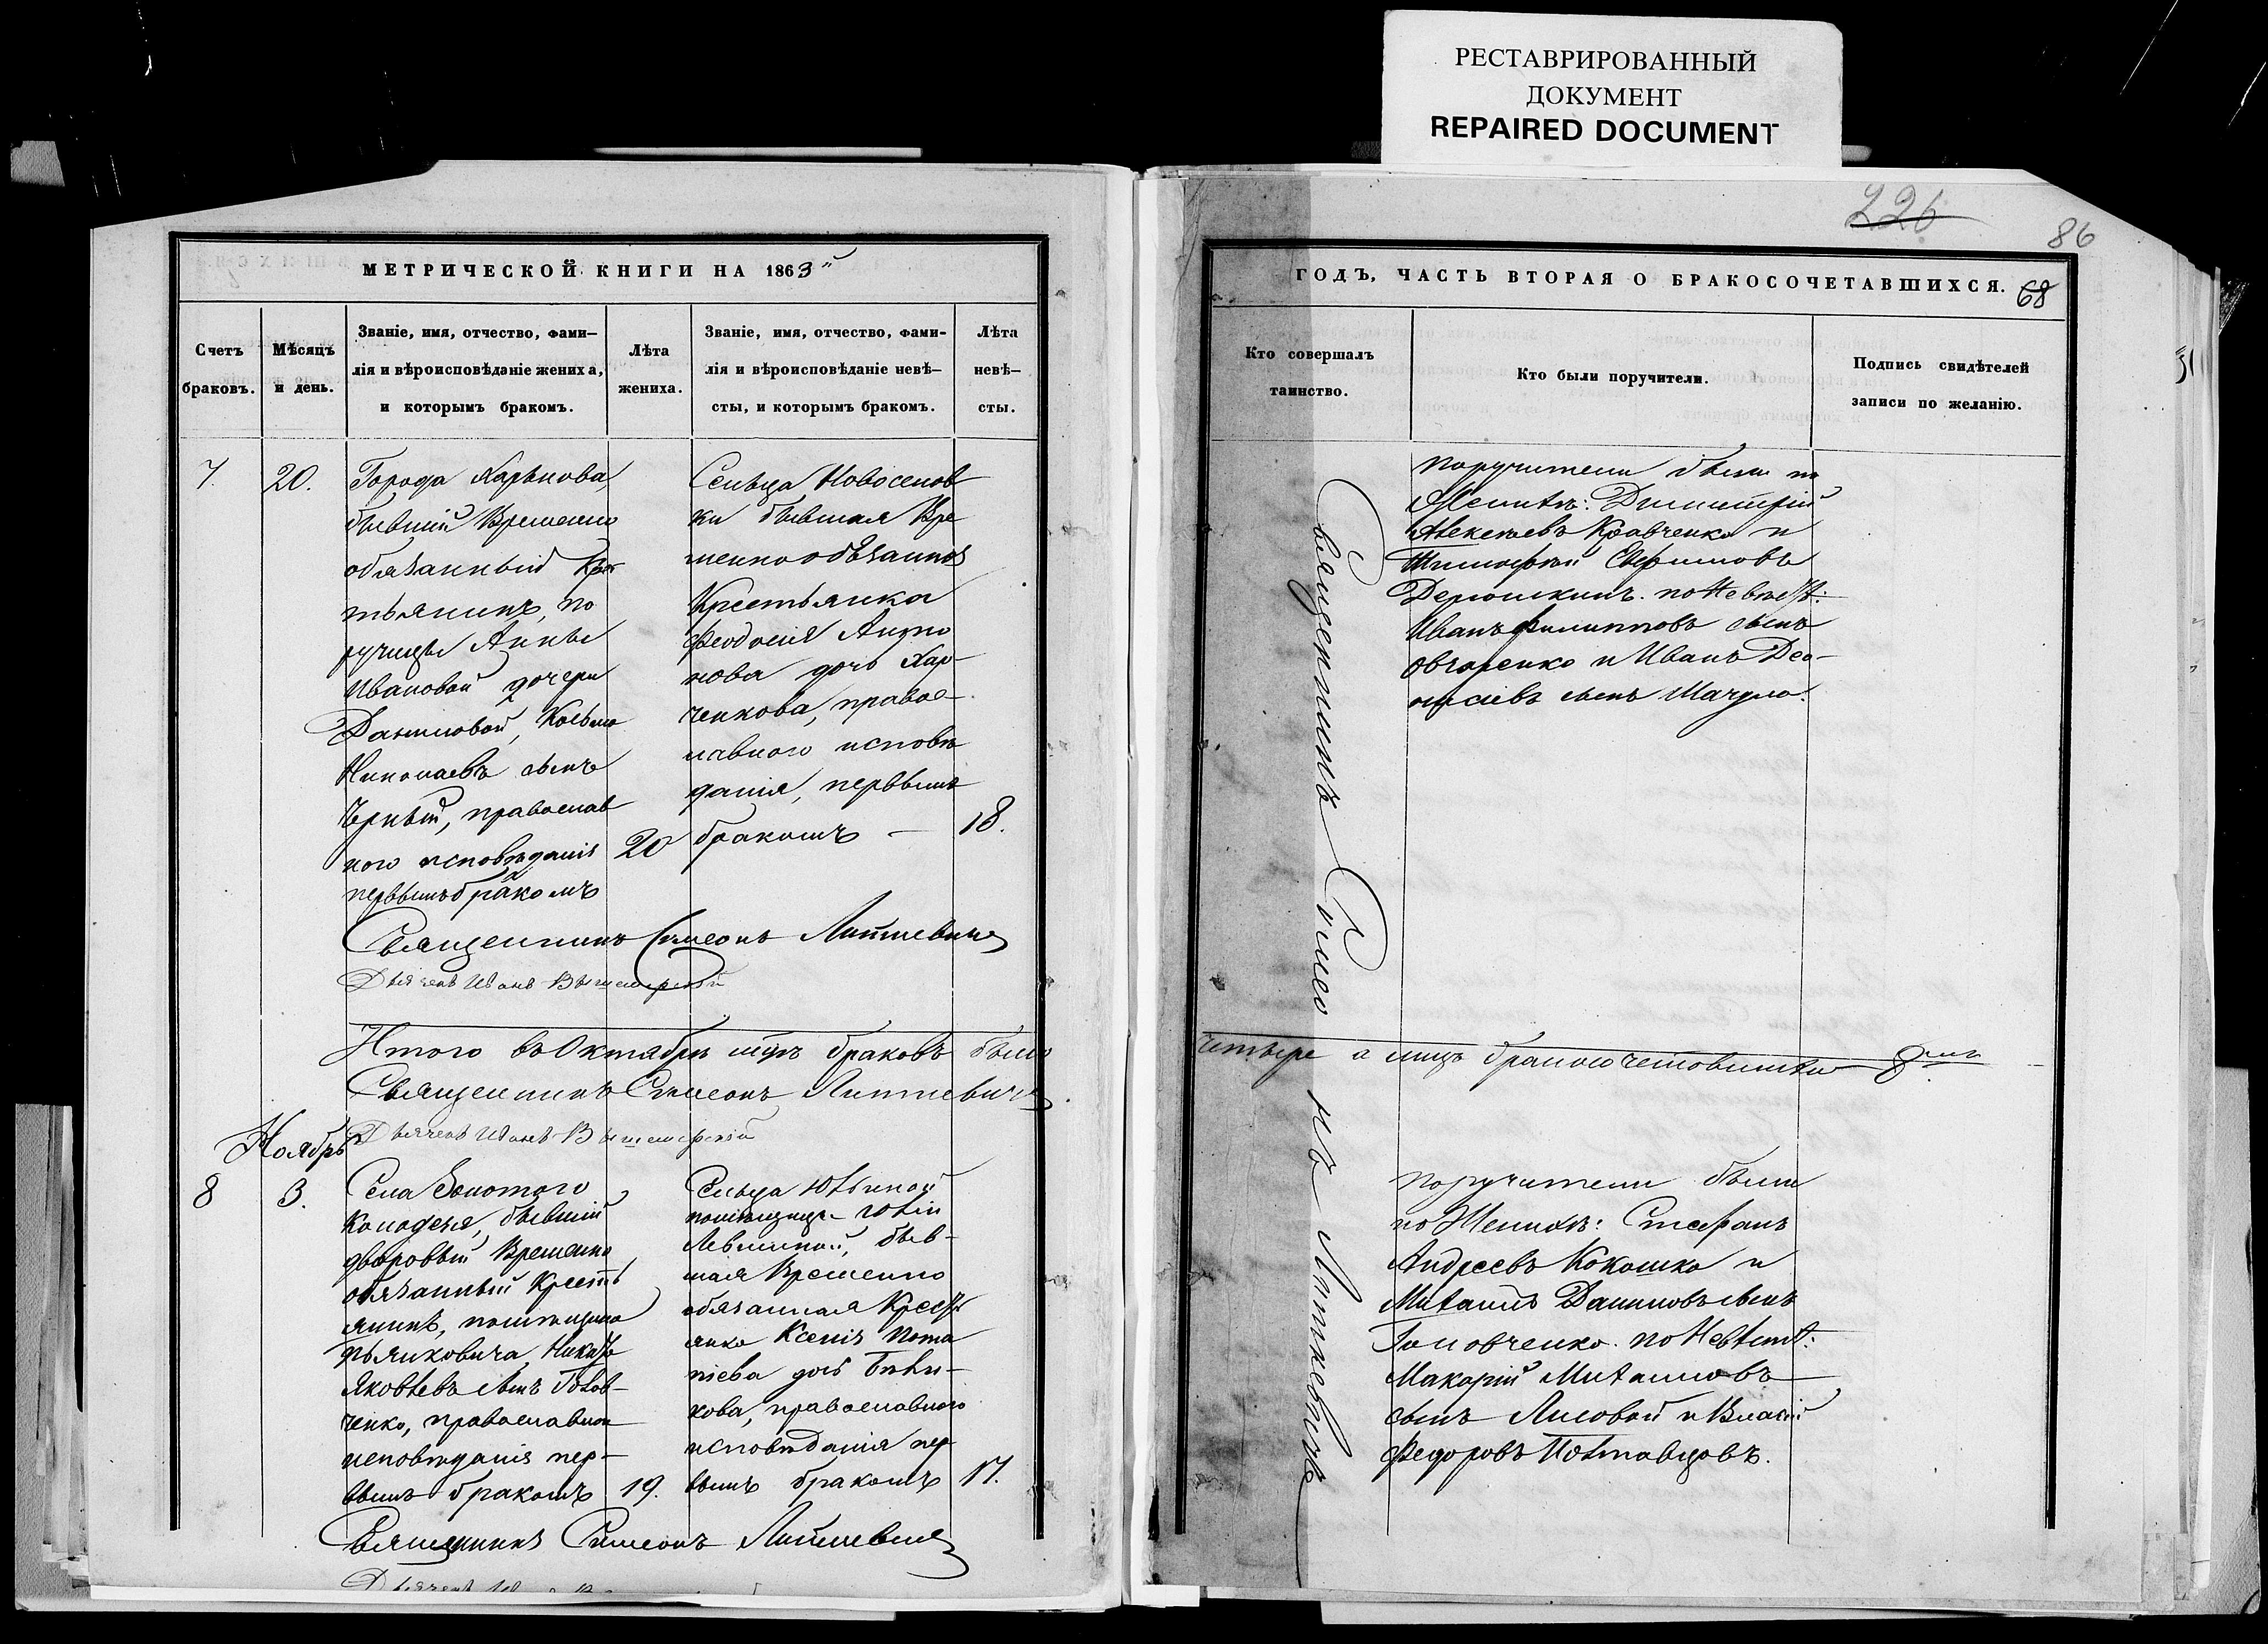 РЕСТАВРИРОВАННЫЙ
ДОКУМЕНТ
REPAIRED DOCUMENT
МЕТРИЧЕСКОЙ КНИГИ НА 1863
Счетъ
браковъ.
Мѣсяцъ
и день.
Званіе, имя, отчество, фами–
лія и вѣроисповѣданіе жениха,
и которымъ бракомъ.
Лѣта
жениха.
Званіе, имя, отчество, фами-
лія и вѣроисповѣданіе невѣ–
сты, и которымъ бракомъ.
Лѣта
невѣ–
сты.
7.
20.
Города Харькова,
бывшій Временно
обязанный Крес
тьянинъ, по
ручицы Анны
Ивановой дочери
Даниловой, Козьма
Николаевъ сынъ
Черный, православ
ного исповѣданія
первымъ бракомъ
20
Сельца Новоселов
ки бывшая Вре
менно обязанная
Крестьянка
Феодосія
нова дочь Хар–
ченкова, правос–
лавного исповѣ
данія, первымъ
бракомъ —
18.
Священникъ Симеонъ Литкевичъ
Дьячекъ Иванъ
Итого въ Октябрѣ мцѣ браковъ было
Священникъ Симеонъ Литкевичъ
Дьячекъ Иванъ
Ноябрь
8
3.
Села Золотого
Колодезя, бывшій
дворовый Временно
обязанный Кресть
янинъ, помѣщика
Никита
Яковлевъ сынъ Голов–
ченко, православного
исповѣданія пер–
вымъ бракомъ
19.
Сельца Юльиной
помѣщицы Юліи
Левшиной, быв–
шая Временно
обязанная Кресть
янка Ксенія Пота
піева дочь
кова, православного
исповѣданія пер
вымъ бракомъ
17.
Священникъ Симеонъ Литкевичъ
226
86
ГОДЪ, ЧАСТЬ ВТОРАЯ О БРАКОСОЧЕТАВШИХСЯ.
68
Кто совершалъ
таинство.
Кто были поручители.
Подпись свидѣтелей
записи по желанію.
Священникъ Симеонъ Литкевичъ
поручители были по
Женихѣ: Димитрій
Алексѣевъ Кравченко и
Тимофей Ефимовъ
Дерюжкинъ. по Невѣстѣ:
Иванъ Филипповъ сынъ
Овчаренко и Иванъ
сынъ
четыре а лицъ бракосочетовшихся 8
поручители были
по Женихѣ: Стефанъ
Андреевъ Кокошко и
Михаилъ Даниловъ сынъ
Головченко. по Невѣстѣ:
Макарій Михаиловъ
сынъ Лисовой и Власій
Федоровъ Полтавцовъ.